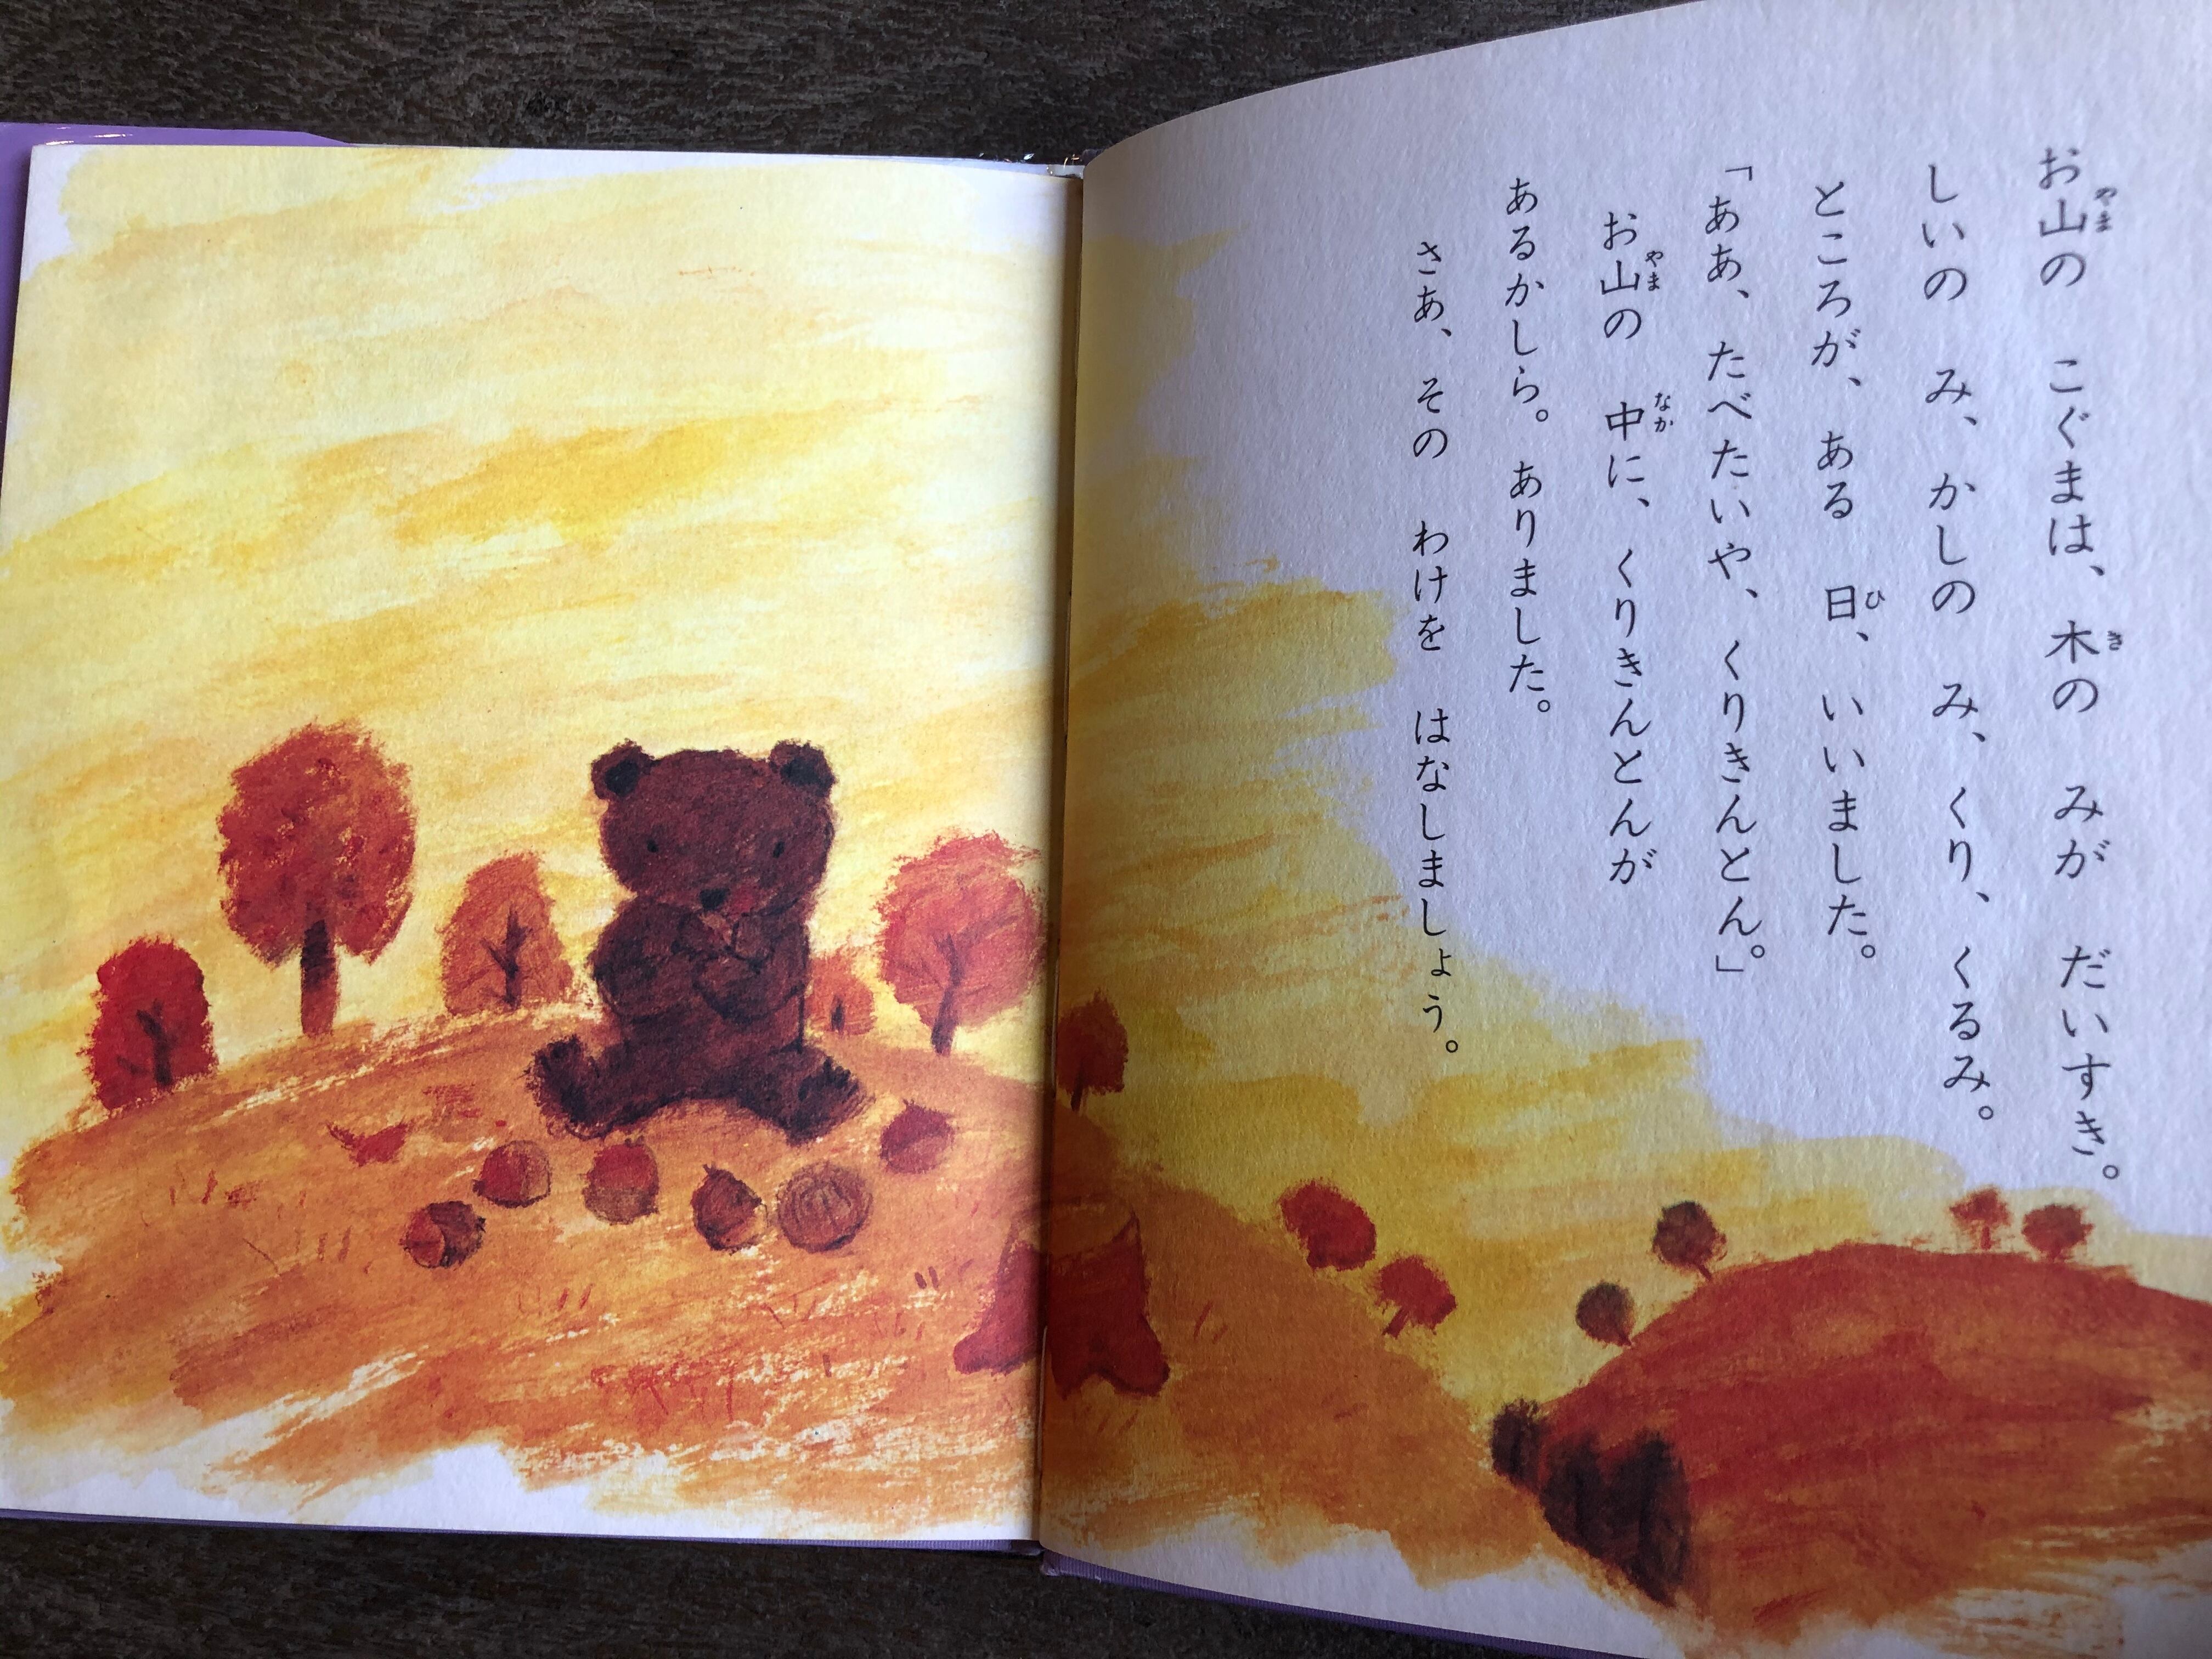 お山の　こぐまは、木の　みが　だいすき。
しいの　み、かしの　み、くり、くるみ。
ところが、ある　日、いいました。
「ああ、たべたいや、くりきんとん。」
お山の　中に、くりきんとんが
あるかしら。ありました。
さあ、その　わけを　はなしましょう。